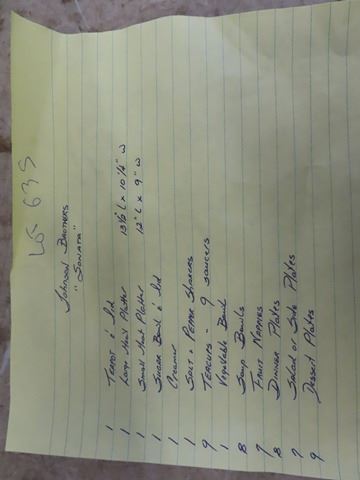 LG 635
JOHNSON BROTHERS
"SONATA"
1 TEAPOT & Lid
1 Large Meat Platter 13½ L x 10¼" W
1 Small Meat Platter 12" L x 9" W
1 SUGAR Bowl & Lid
1 Creamer
1 SALT & PEPPER SHAKERS
9 TEACUPS - 9 SAUCERS
1 Vegetable Bowl
8 Soup Bowls
9 FRUIT NAPPIES
8 DINNER PLATES
9 Salad or Side Plates
9 Dessert Plates